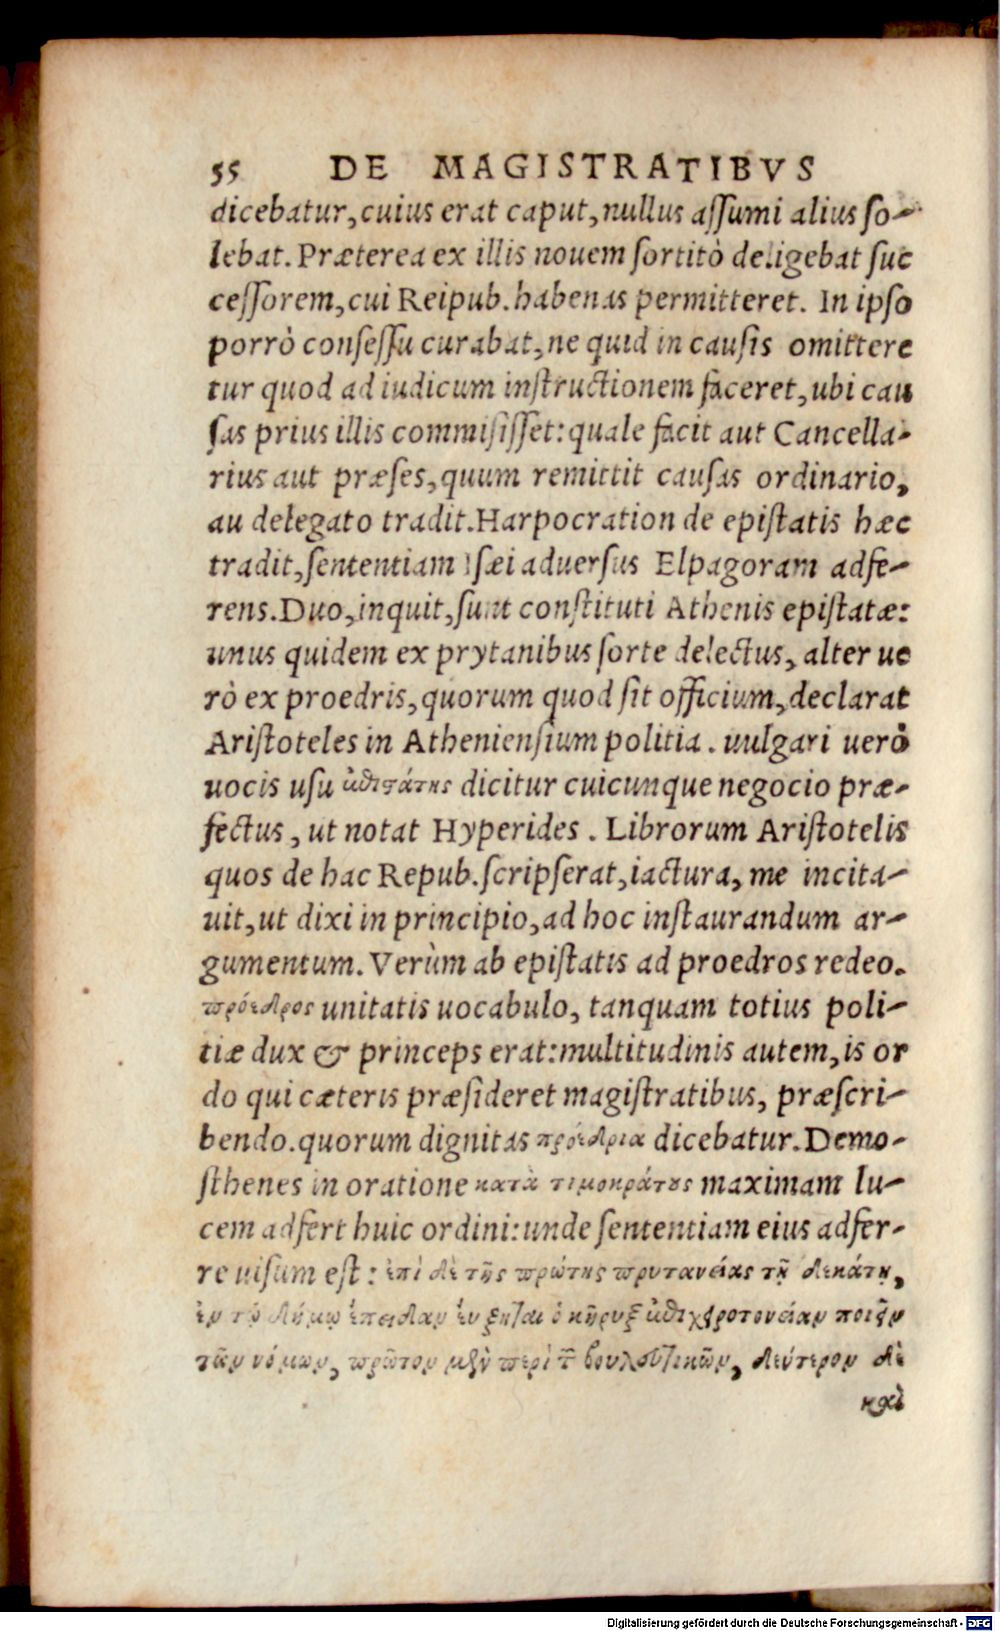 55 DE MAGISTRATIBVS
dicebatur, cuius erat caput, nullus assumi alius so-
lebat. Præterea ex illis nouem sortitò deligebat suc
cessorem, cui Reipub. habenas permitteret. In ipso
porrò consessu curabat, ne quid in causis omittere
tur quod ad iudicum instructionem faceret, ubi cau
sas prius illis commisisset: quale facit aut Cancella-
rius aut præses, quum remittit causas ordinario,
au delegato tradit. Harpocration de epistatis hæc
tradit, sententiam Isæi aduersus Elpagoram adfe-
rens. Duo, inquit, sunt constituti Athenis epistatæ:
unus quidem ex prytanibus sorte delectus, alter ue
rò ex proedris, quorum quod sit officium, declarat
Aristoteles in Atheniensium politia. uulgari uerò
uocis usu ἐπιστάτης dicitur cuicunque negocio præ-
fectus, ut notat Hyperides. Librorum Aristotelis
quos de hac Repub. scripserat, iactura, me incita-
uit, ut dixi in principio, ad hoc instaurandum ar-
gumentum. Verùm ab epistatis ad proedros redeo.
πρόεδρος unitatis uocabulo, tanquam totius poli-
tiæ dux & princeps erat: multitudinis autem, is or
do qui cæteris præsideret magistratibus, præscri-
bendo. quorum dignitas πρόεδρια dicebatur. Demo-
sthenes in oratione κατὰ τιμοκράτους maximam lu-
cem adfert huic ordini: unde sententiam eius adfer-
re uisum est: ἐπὶ δὲ τῆς πρώτης πρυτανείας τῇ δεκάτῃ,
ἐν τῷ δήμῳ ἐπειδαν ἐυξηται ὁ κῆρυξ ἐπιχειροτονείαν ποιεῖν
τῶν νόμων, πρῶτον μὲν περὶ τῶν βουλευτικῶν, δεύτερον δὲ
καὶ
Digitalisierung gefördert durch die Deutsche Forschungsgemeinschaft - DFG